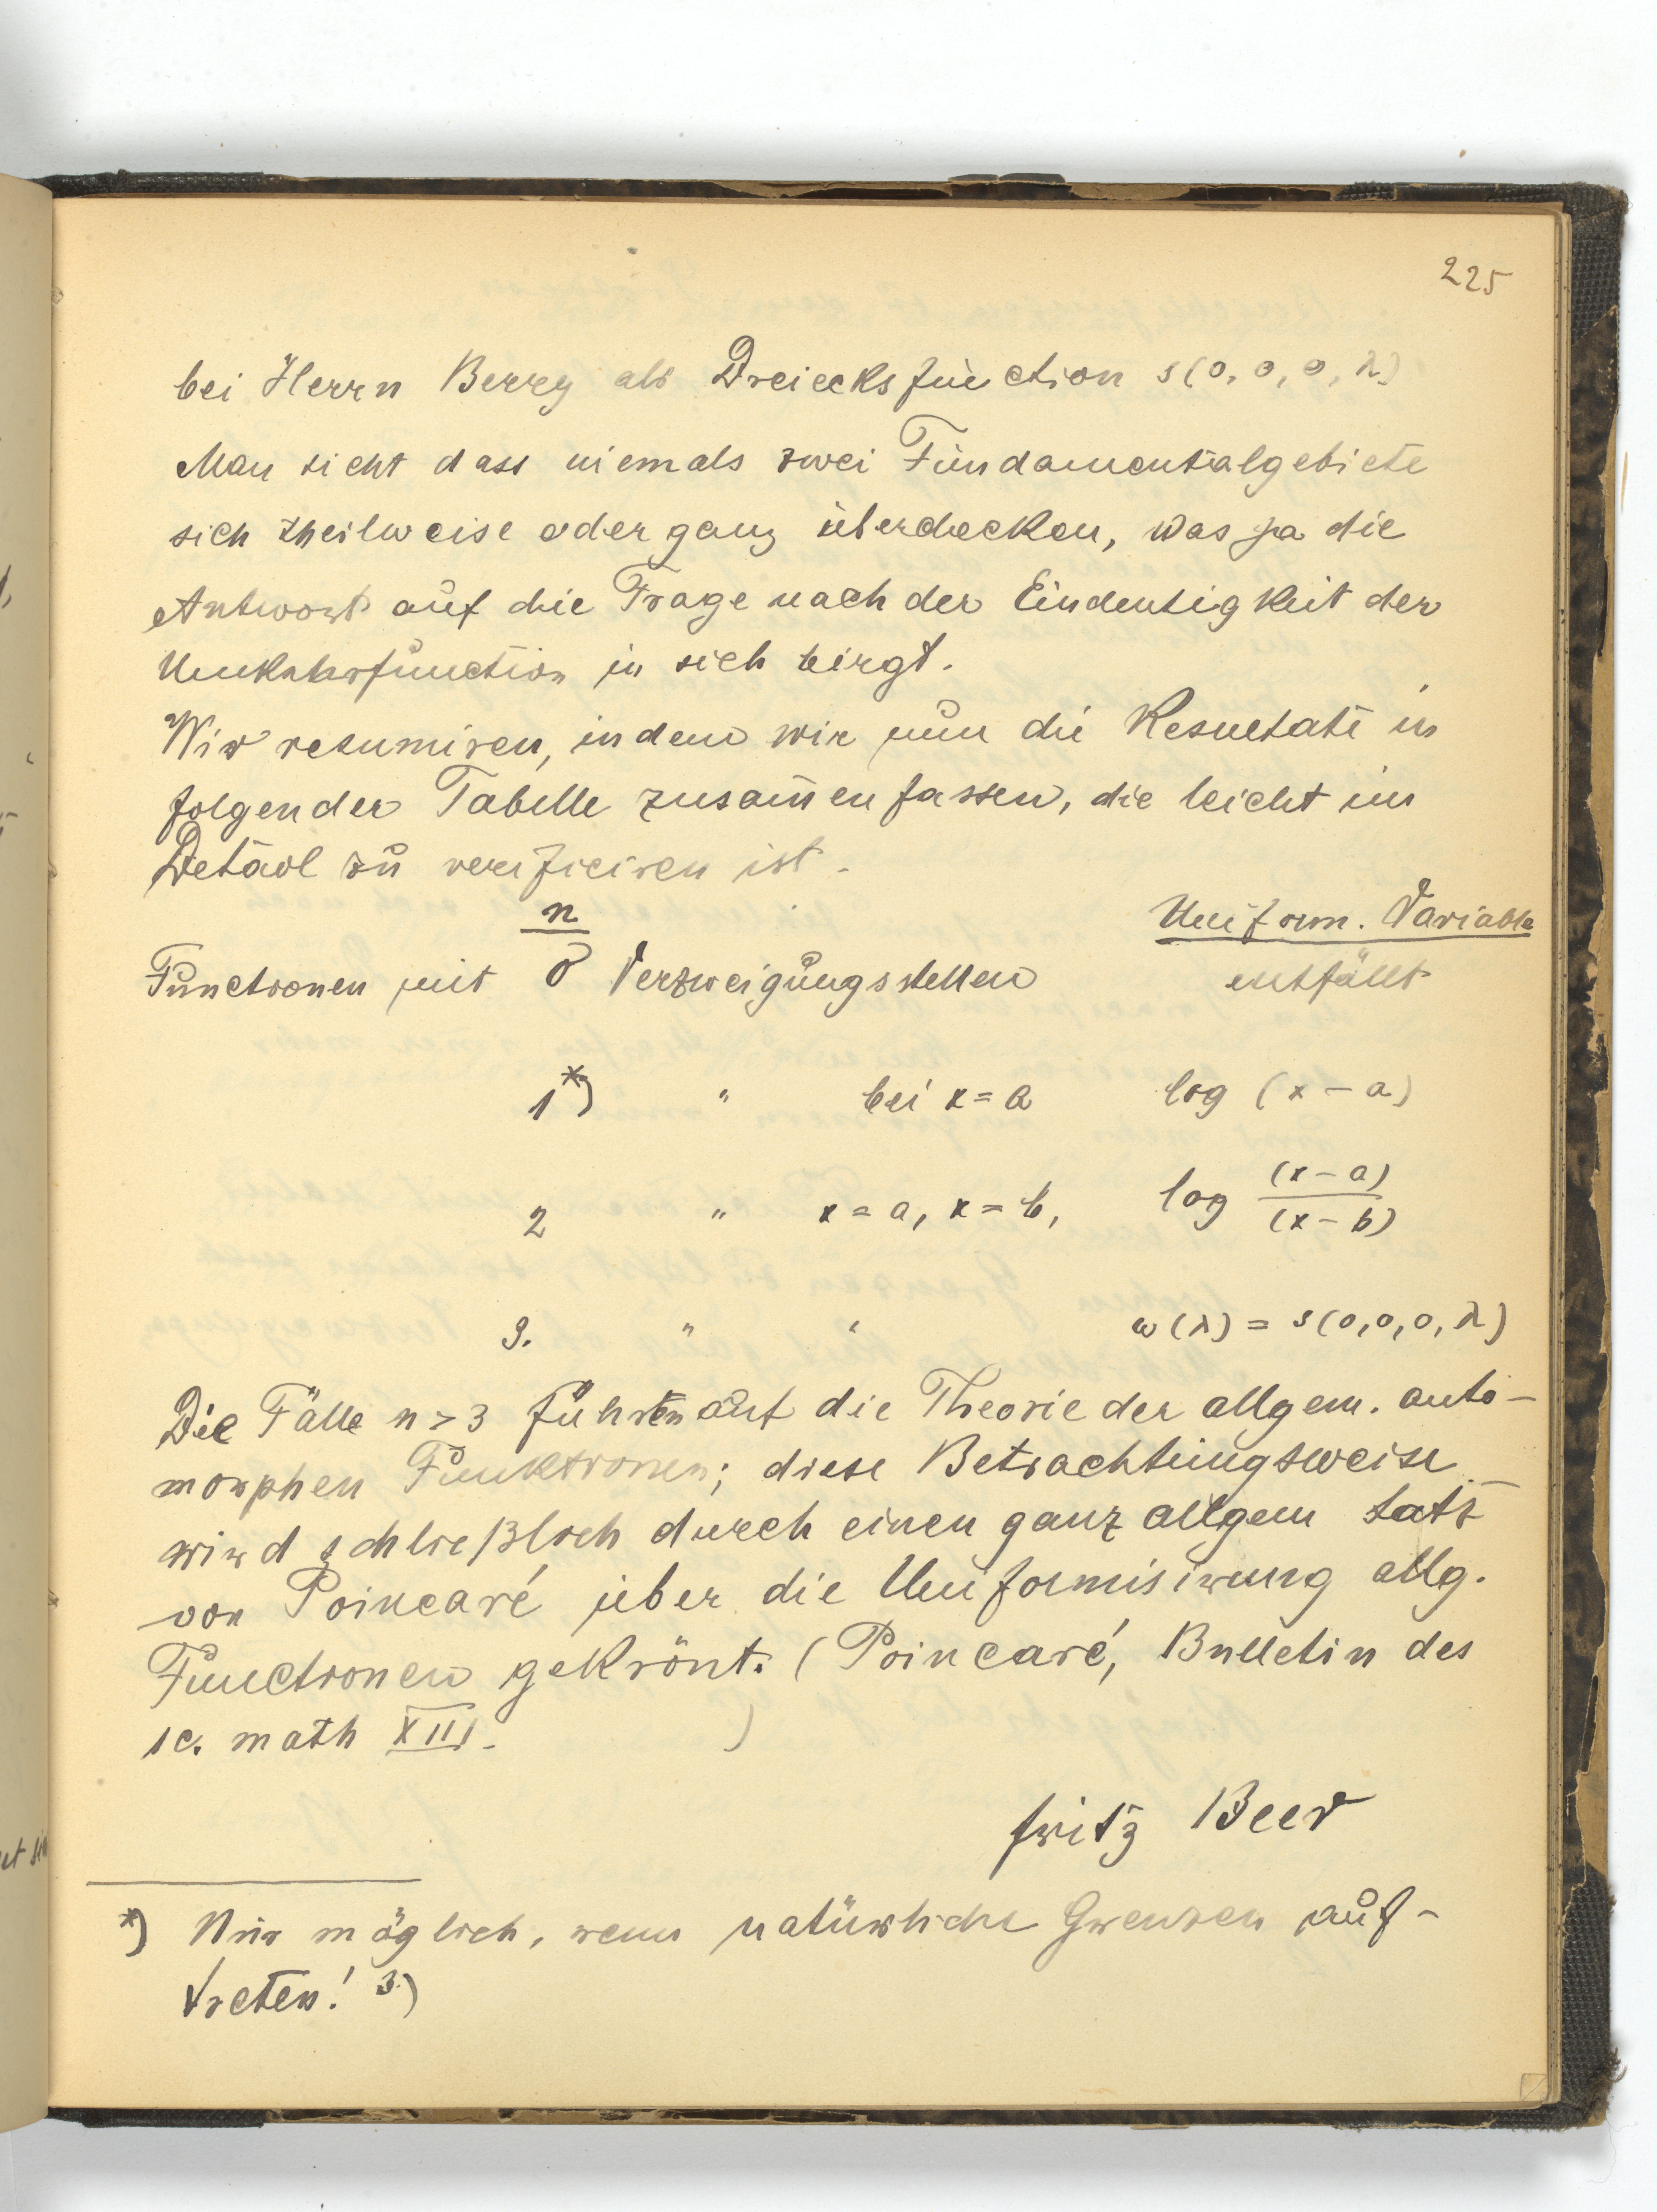 225
bei Herrn Berry als Dreiecksfunction s(0, 0, 0, λ)
Man sieht dass niemals zwei Fundamentalgebiete
sich theilweise oder ganz überdecken, was ja die
Antwort auf die Frage nach der Eindeutigkeit der
Umkehrfunction in sich birgt.
Wir resumiren, indem wir nun die Resultate in
folgender Tabelle zusam̅en fassen, die leicht im
Detail zu verificiren ist.
n Uniform. Variable
Functionen mit 0 Verzweigungsstellen entfällt
1*) " bei x = a log (x − a)
2 " x = a, x = b, log (x − a) / (x − b)
3. " " ω(λ) = s(0,0,0, λ)
Die Fälle n > 3 führten auf die Theorie der allgem. auto-
morphen Funktionen; diese Betrachtungsweise
wird schließlich durch einen ganz allgem Satz
von Poincaré über die Uniformisirung allg.
Functionen gekrönt. (Poincaré, Bulletin des
sc. math XIII. )
Fritz Beer
*) Nur möglich, wenn natürliche Grenzen auf-
treten! 3)